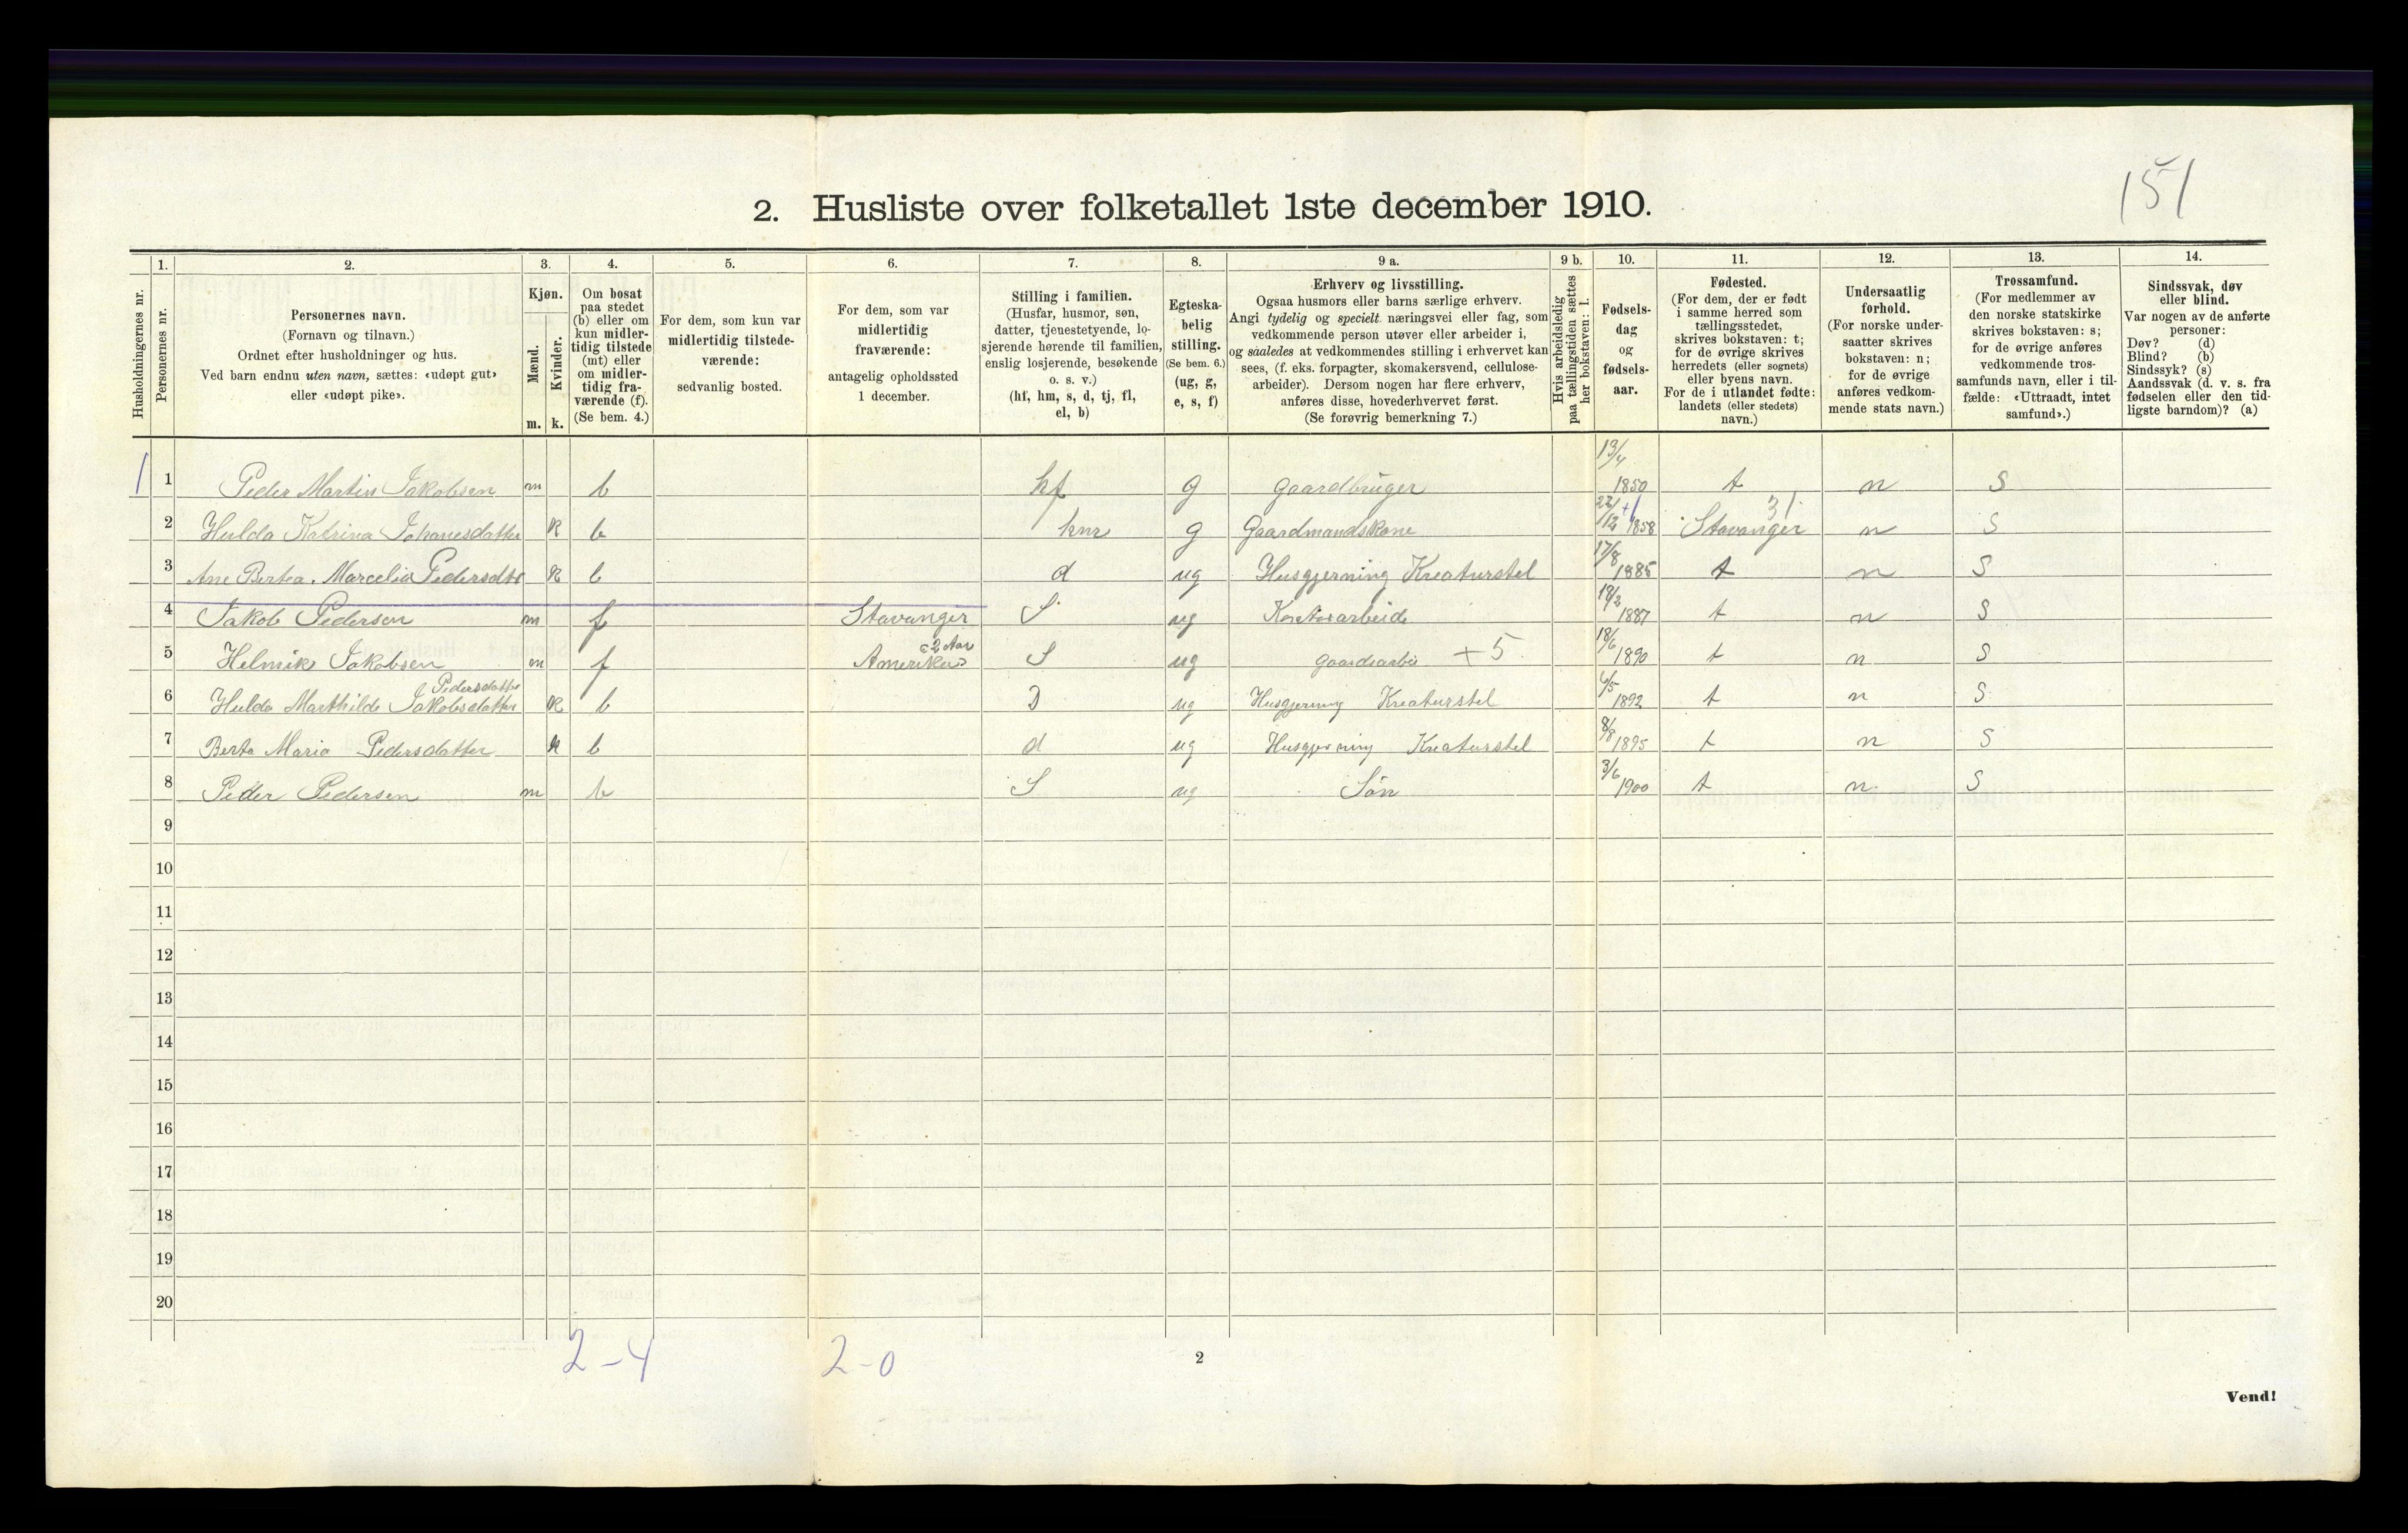 151
2. Husliste over folketallet 1ste december 1910.
1. 2. 3. 4. 5. 6. 7. 8. 9 a. 9 b. 10. 11. 12. 13. 14.
Husholdningernes nr.
Personernes nr.
Personernes navn.
(Fornavn og tilnavn.)
Ordnet efter husholdninger og hus.
Ved barn endnu uten navn, sættes: «udøpt gut»
eller «udøpt pike».
Kjøn.
Mænd.
Kvinder.
m. k.
Om bosat
paa stedet
(b) eller om
kun midler-
tidig tilstede
(mt) eller
om midler-
tidig fra-
værende (f).
(Se bem. 4.)
For dem, som kun var
midlertidig tilstede-
værende:
sedvanlig bosted.
For dem, som var
midlertidig
fraværende:
antagelig opholdssted
1 december.
Stilling i familien.
(Husfar, husmor, søn,
datter, tjenestetyende, lo-
sjerende hørende til familien,
enslig losjerende, besøkende
o. s. v.)
(hf, hm, s, d, tj, fl,
el, b)
Egteska-
belig
stilling.
(Se bem. 6.)
(ug, g,
e, s, f)
Erhverv og livsstilling.
Ogsaa husmors eller barns særlige erhverv.
Angi tydelig og specielt næringsvei eller fag, som
vedkommende person utøver eller arbeider i,
og saaledes at vedkommendes stilling i erhvervet kan
sees, (f. eks. forpagter, skomakersvend, cellulose-
arbeider). Dersom nogen har flere erhverv,
anføres disse, hovederhvervet først.
(Se forøvrig bemerkning 7.)
Hvis arbeidsledig
paa tællingstiden sættes
her bokstaven: l.
Fødsels-
dag
og
fødsels-
aar.
Fødested.
(For dem, der er født
i samme herred som
tællingsstedet,
skrives bokstaven: t;
for de øvrige skrives
herredets (eller sognets)
eller byens navn.
For de i utlandet fødte:
landets (eller stedets)
navn.)
Undersaatlig
forhold.
(For norske under-
saatter skrives
bokstaven: n;
for de øvrige
anføres vedkom-
mende stats navn.)
Trossamfund.
(For medlemmer av
den norske statskirke
skrives bokstaven: s;
for de øvrige anføres
vedkommende tros-
samfunds navn, eller i til-
fælde: «Uttraadt, intet
samfund».)
Sindssvak, døv
eller blind.
Var nogen av de anførte
personer:
Døv? (d)
Blind? (b)
Sindssyk? (s)
Aandssvak (d. v. s. fra
fødselen eller den tid-
ligste barndom)? (a)
1 1 Peder Martin Jakobsen m b hf g gaardbruger 13/4 1850 t n S
2 Hulda Katrina Johanesdatter K b hm g Gaardmandskone 22/12 +1 1858 Stavanger 31. n S
3 Ane Bertea. Marcelia Pedersdtr K b d ug Husgjerning Kreaturstel 17/8 1885 t n S
4 Jakob Pedersen m f Stavanger S ug Kontorarbeide 18/2 1887 t n S
5 Helmik Jakobsen m f Amerika 2 Aar S ug gaardsarbei +5 18/6 1890 t n S
6 Hulda Marthilde Jakobsdatter Pedersdatter K b D ug Husgjerning Kreaturstel 6/5 1892 t n S
7 Berta Maria Pedersdatter K b d ug Husgjerning Kreaturstel 8/8 1895 t n S
8 Peder Pedersen m b S ug Søn 3/6 1900 t n S
9
10
11
12
13
14
15
16
17
18
19
20
2-4 2-0
2
Vend!